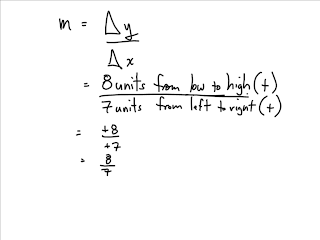 m = Δy
Δx
= 8 units from low to high (+)
7 units from left to right (+)
= +8
+7
= 8
7